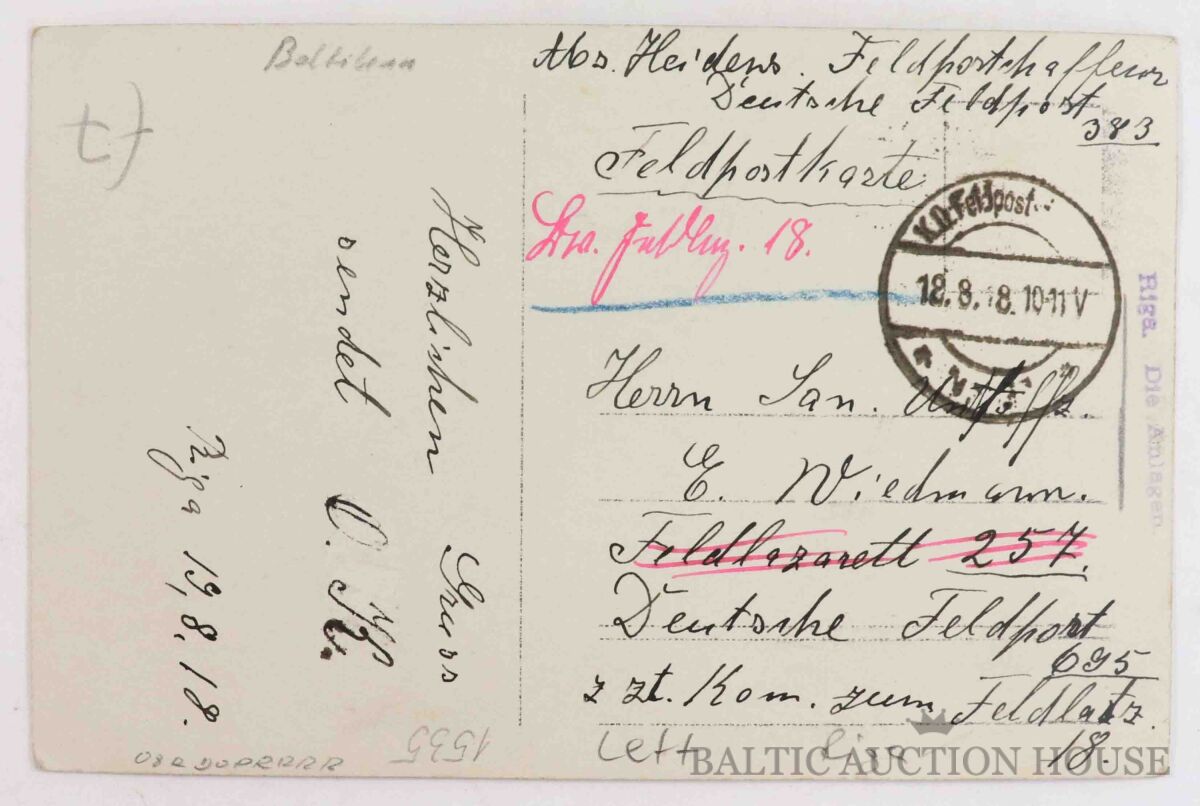 Baltikum
Abs. Heidens. Feldpostschaffner
Deutsche Feldpost
383
Feldpostkarte
18.
K.D. Feldpost
18.8.18. 10-11 V
Riga. Die Anlagen
Herrn San. Untffz.
E. Wiedmann.
Feldlazarett 257.
Deutsche Feldpost
695
z zt. Kom. zum Feldlatz.
18.
Herzlichen Gruss
sendet O. K.
Riga 19.8.18.
1535
Lett Riga
BALTIC AUCTION HOUSE